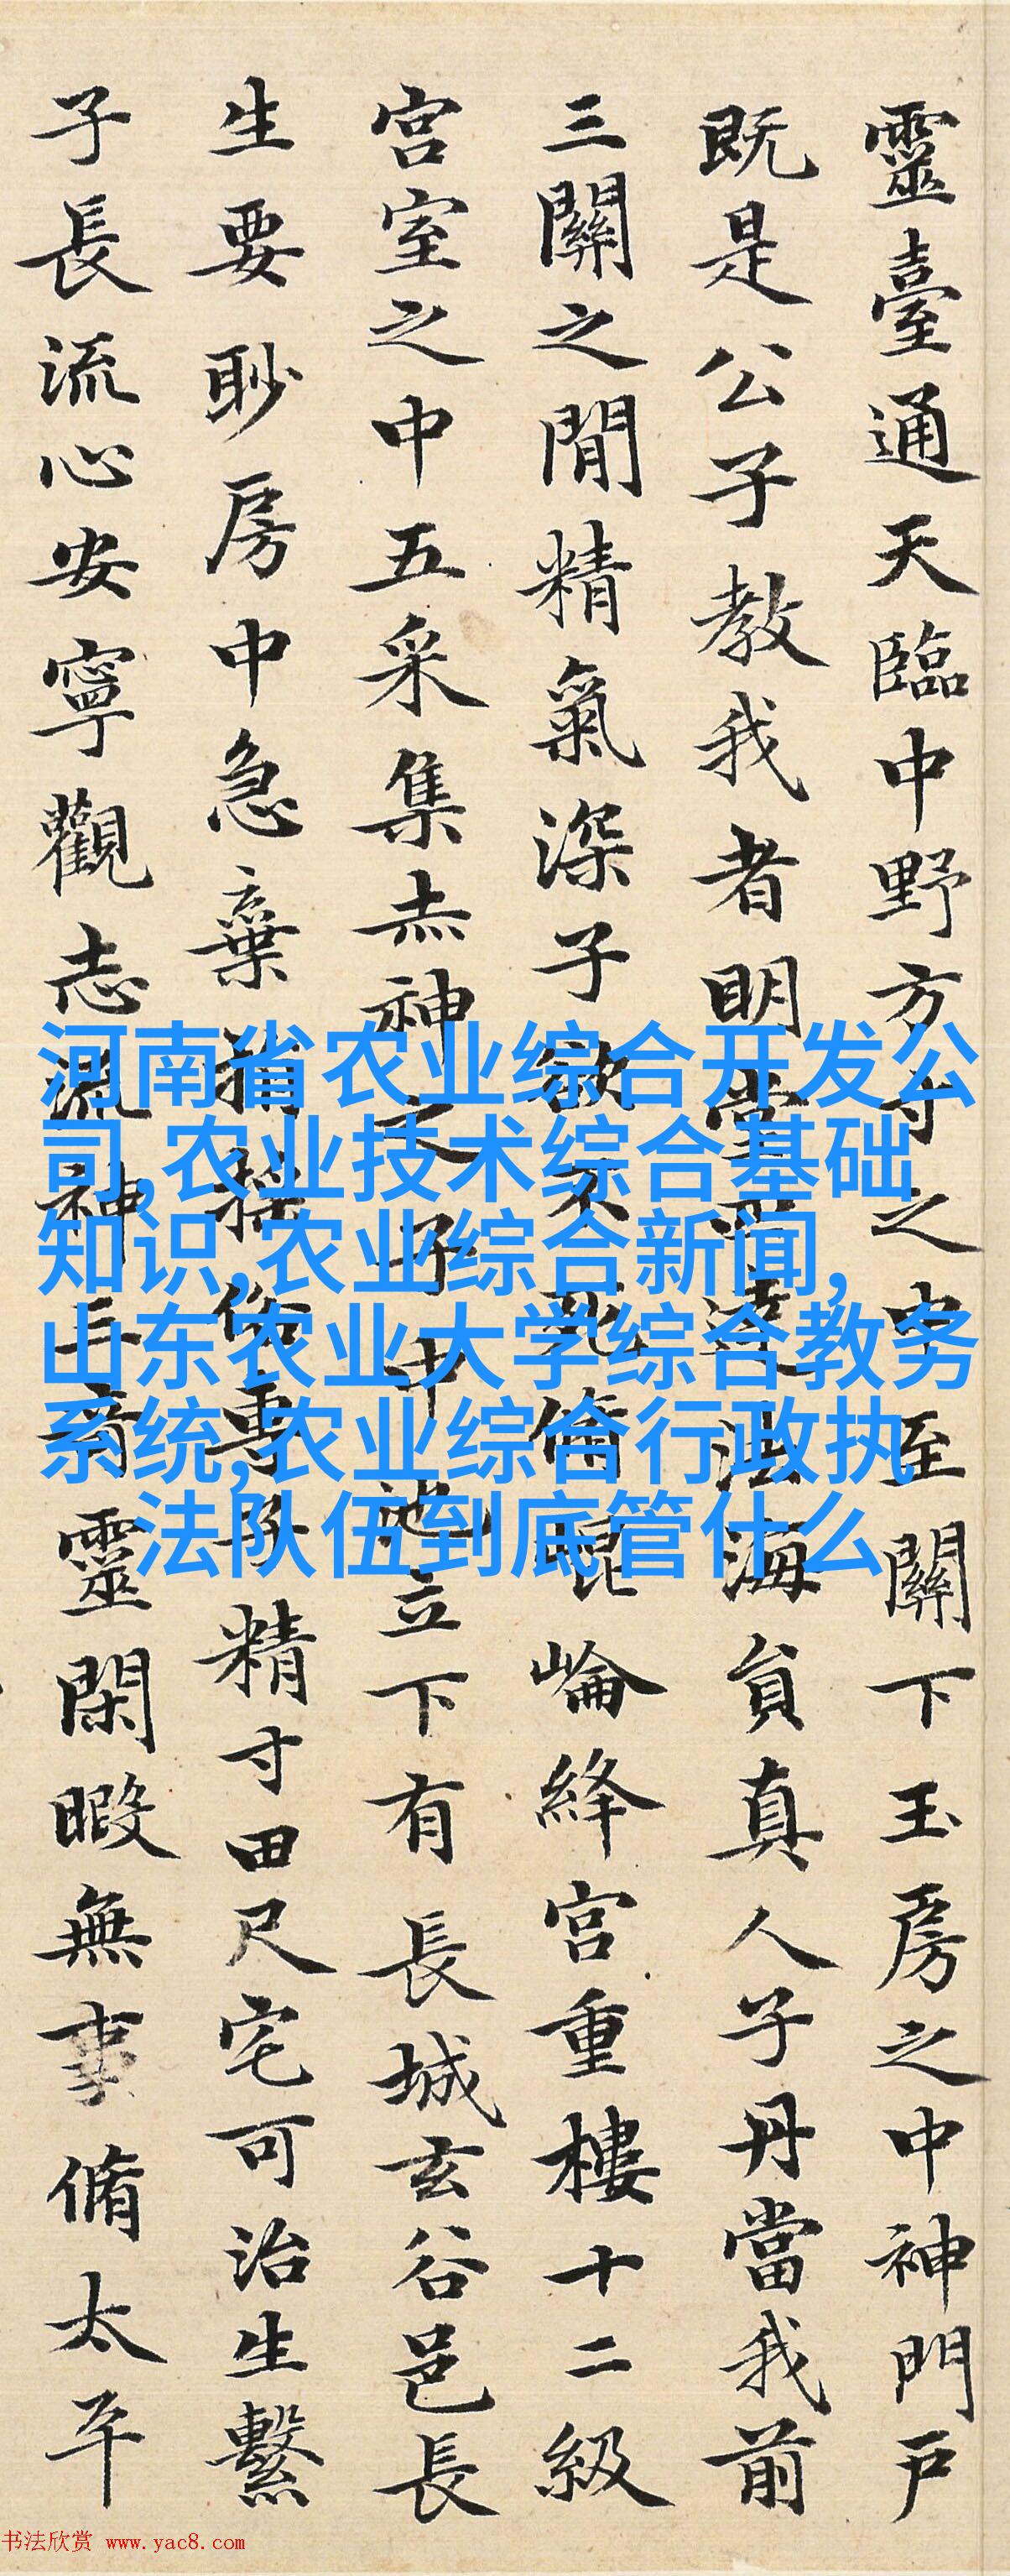 靈臺通天臨中野方寸之中至關下玉房之中神門戶
既是公子教我者明堂四達法海負真人子丹當我前
三關之閒精氣深子欲不死脩崑崙絳宮重樓十二級
宮室之中五采集赤神之子中池立下有長城玄谷邑長
生要眇房中急棄捐搖俗專子精寸田尺宅可治生繫
子長流心安寧觀志流神三奇靈閑暇無事脩太平
河南省农业综合开发公
司,农业技术综合基础
知识,农业综合新闻,
山东农业大学综合教务
系统,农业综合行政执
法队伍到底管什么
书法欣赏 www.yac8.com